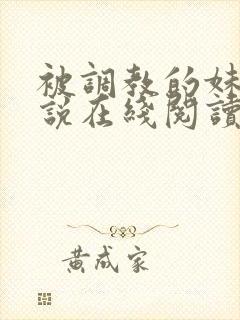 被調教的妹
說在綫閱讀
黄成家